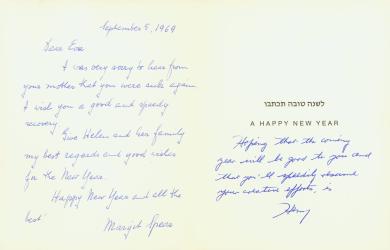 September 5, 1969
Dear Eva
I was very sorry to hear from
your mother that you were sick again.
I wish you a good and speedy
recovery.
Give Helen and her family
my best regards and good wishes
for the New Year.
Happy New Year and all the
best
Margit
לשנה טובה תכתבו
A HAPPY NEW YEAR
Hoping that the coming
year will be good to you and
that you'll speedily resume
your creative efforts, is
Henry